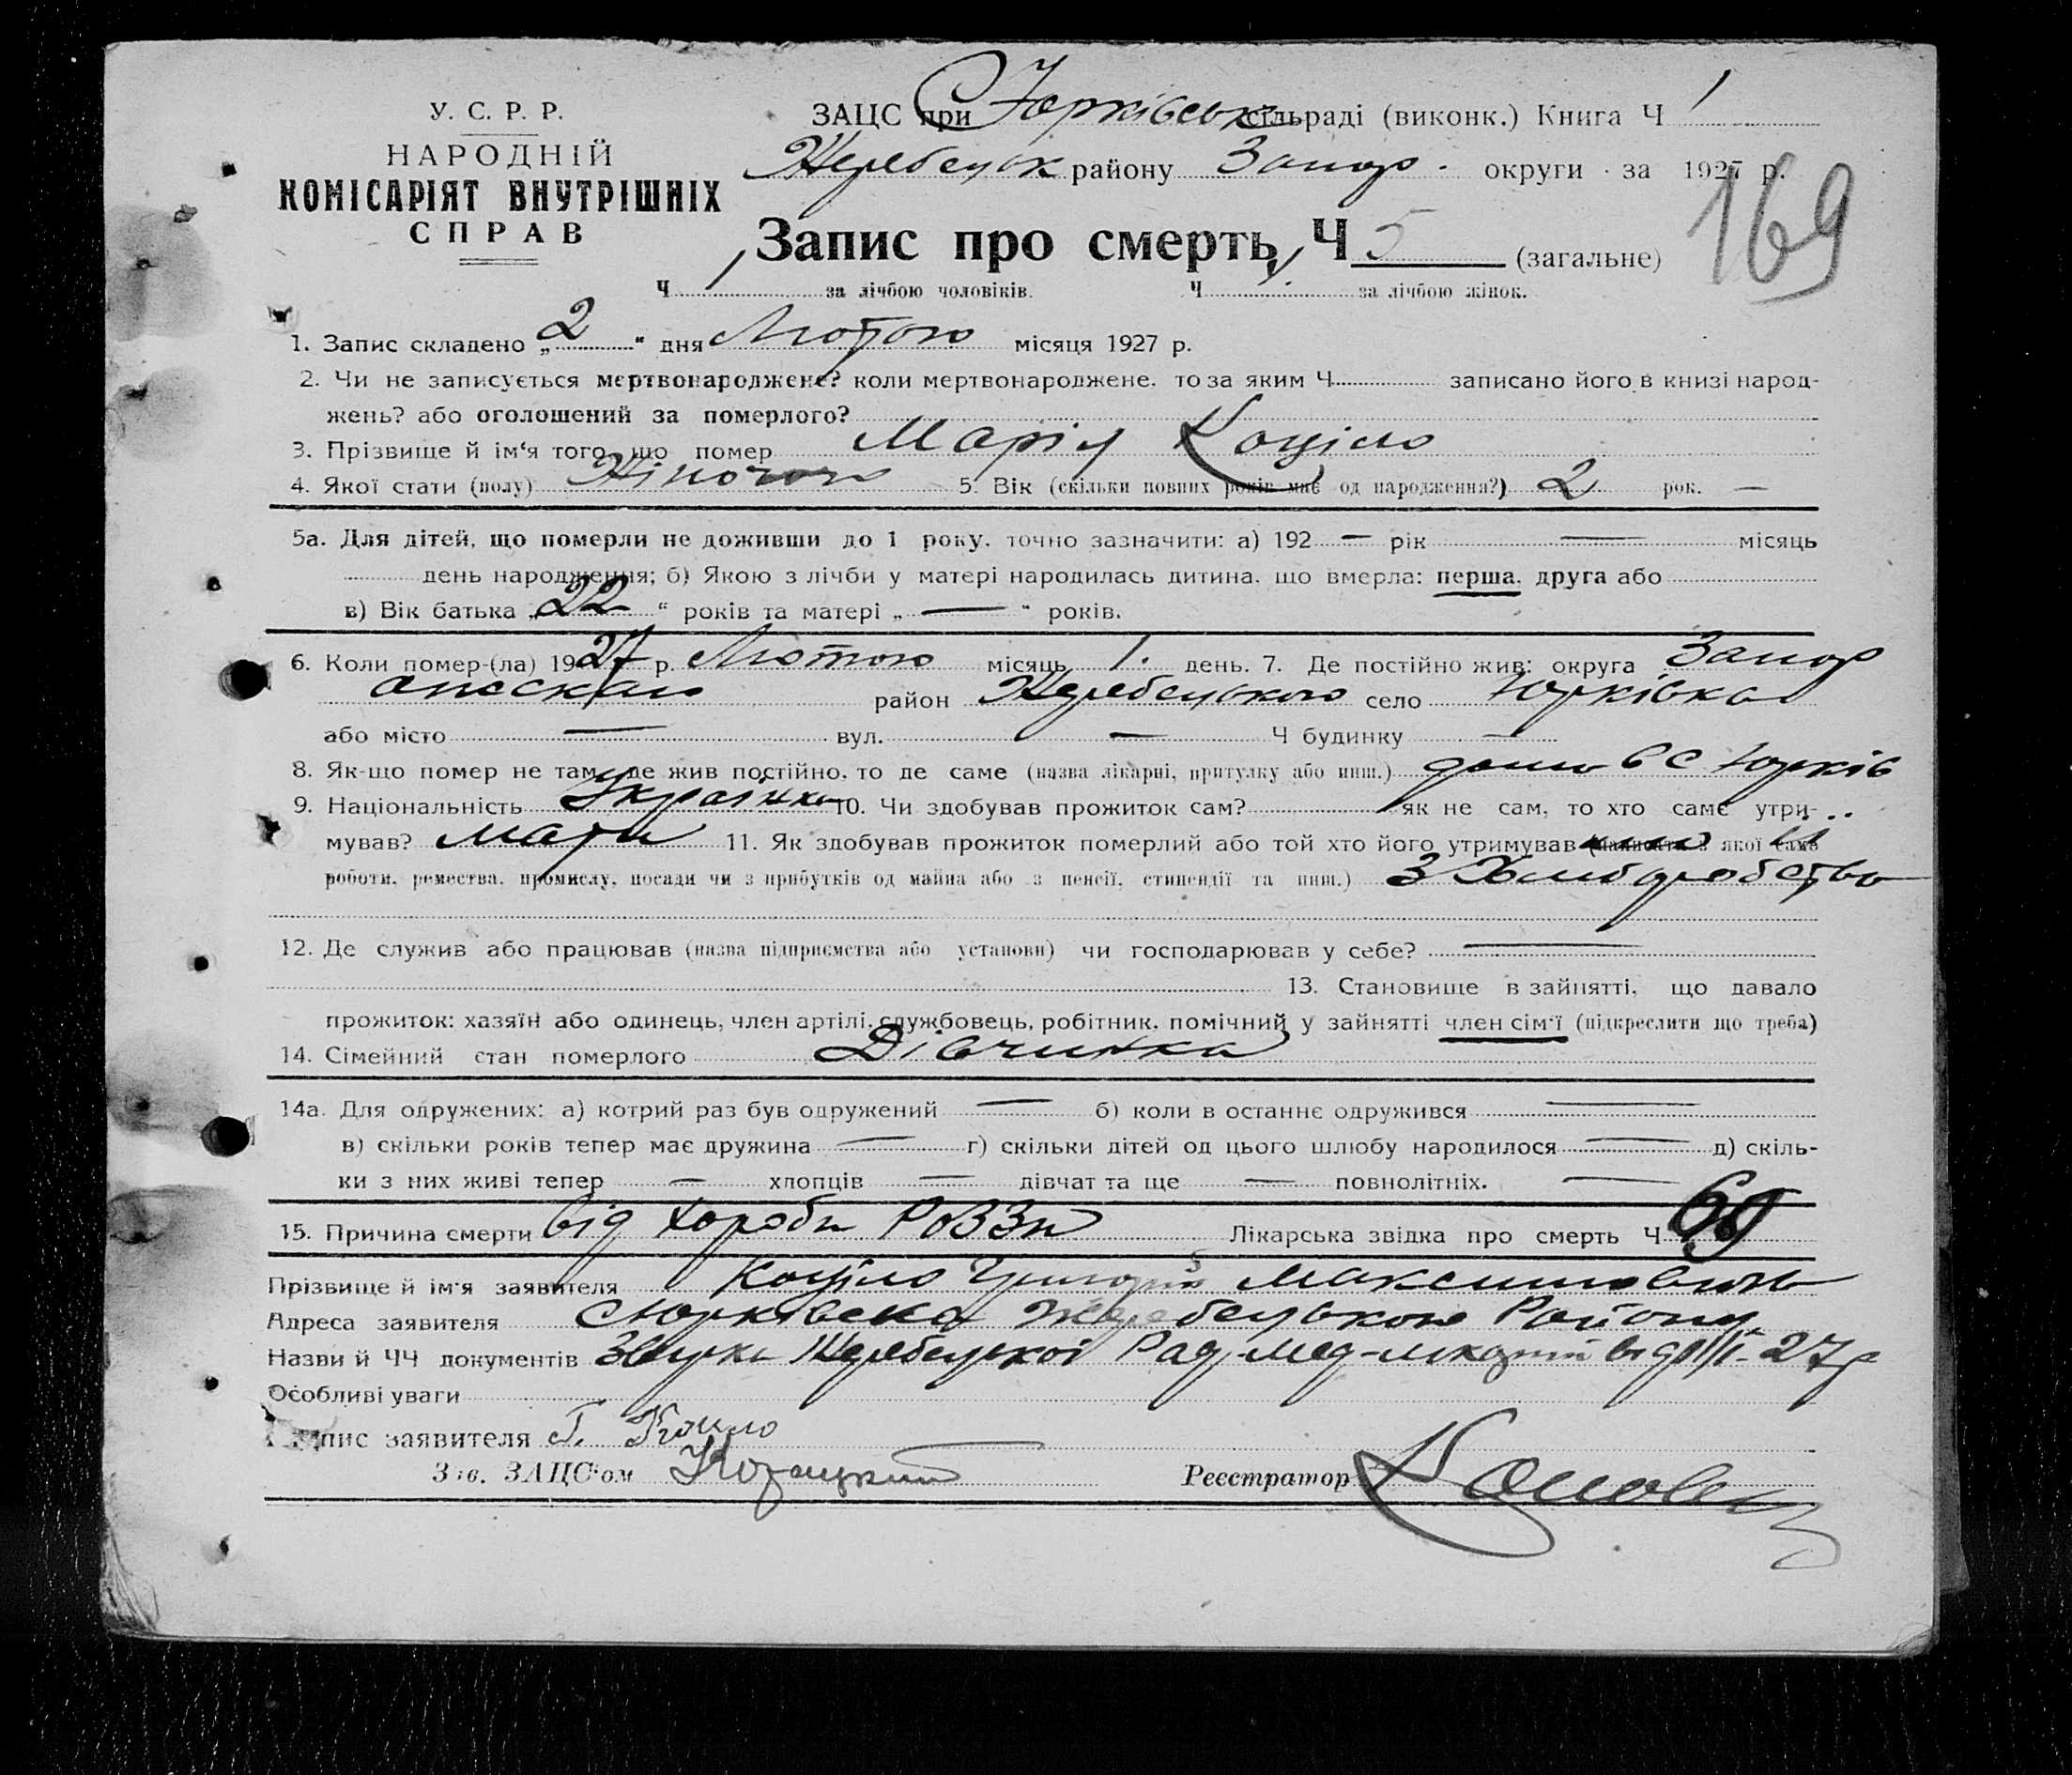 У. С. Р. Р.
НАРОДНІЙ
КОМІСАРІЯТ ВНУТРІШНІХ
СПРАВ
ЗАЦС при С Юрківськ сільраді (виконк.) Книга Ч 1
Жеребецьк району Запор. округи за 1927 р.
169
Запис про смерть, Ч 5 (загальне)
Ч 1 за лічбою чоловіків. Ч за лічбою жінок.
1. Запис складено „2“ дня Лютого місяця 1927 р.
2. Чи не записується мертвонароджене? коли мертвонароджене, то за яким Ч записано його в книзі народ-
жень? або оголошений за померлого?
3. Прізвище й ім'я того, що помер Марія Коціло
4. Якої стати (полу) Жіночого 5. Вік (скільки повних років має од народження?) 2 рок. —
5а. Для дітей, що померли не доживши до 1 року, точно зазначити: а) 192 — рік — місяць
день народження; б) Якою з лічби у матері народилась дитина, що вмерла: перша, друга або
в) Вік батька „22“ років та матері „—“ років.
6. Коли помер-(ла) 1927 р. Лютого місяць 1. день. 7. Де постійно жив: округа Запор
район Жеребецького село Юрківка
або місто — вул. — Ч будинку —
8. Як-що помер не там, де жив постійно, то де саме (назва лікарні, притулку або инш.) дома в С Юрків
9. Національність Українка 10. Чи здобував прожиток сам? як не сам, то хто саме утри-
мував? Мати 11. Як здобував прожиток померлий або той хто його утримував (написати з якої саме
роботи, ремества, промислу, посади чи з прибутків од майна або з пенсії, стипендії та инш.) З Хлиборобства
12. Де служив або працював (назва підприємства або установи) чи господарював у себе? —
13. Становище в зайнятті, що давало
прожиток: хазяїн або одинець, член артілі, службовець, робітник, помічний у зайнятті член сім'ї (підкреслити що треба)
14. Сімейний стан померлого Дівчинка
14а. Для одружених: а) котрий раз був одружений — б) коли в останнє одружився —
в) скільки років тепер має дружина — г) скільки дітей од цього шлюбу народилося — д) скіль-
ки з них живі тепер — хлопців — дівчат та ще — повнолітніх. —
15. Причина смерти Від Хороби Лікарська звідка про смерть Ч 69
Прізвище й ім'я заявителя Коціло Григорій Максимович
Адреса заявителя С Юрківска Жеребецького Району
Назви й ЧЧ документів Жеребецкої Рад
Особливі уваги
пис заявителя Г. Коцило
Зав. ЗАЦС'ом
Реєстратор